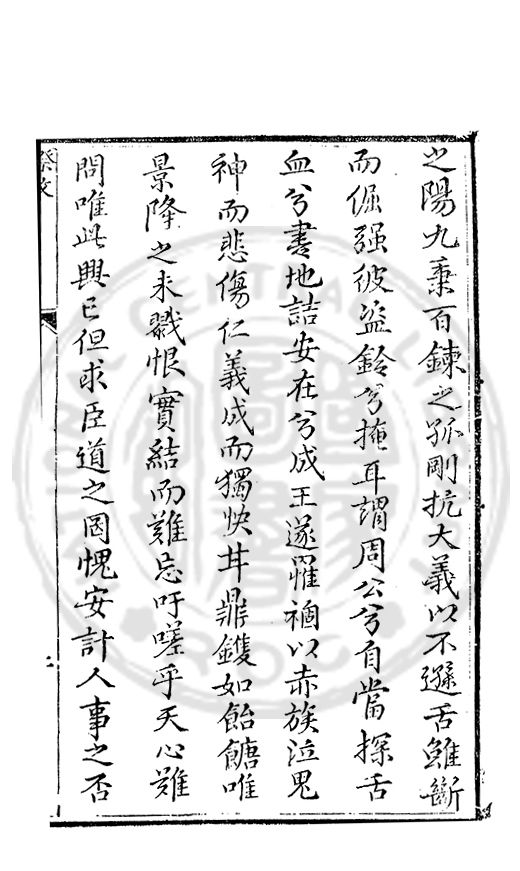 之陽九秉百鍊之孤剛抗大義以不遜舌雖斷
而倔强彼盜鈴兮掩耳謂周公兮自當探舌
血兮書地詰安在兮成王遂罹禍以赤族泣鬼
神而悲傷仁義成而獨快甘鼎鑊如飴餹唯
景降之未戮恨實結而難忘吁嗟乎天心難
問唯此興亡但求臣道之罔愧安計人事之否
祭文